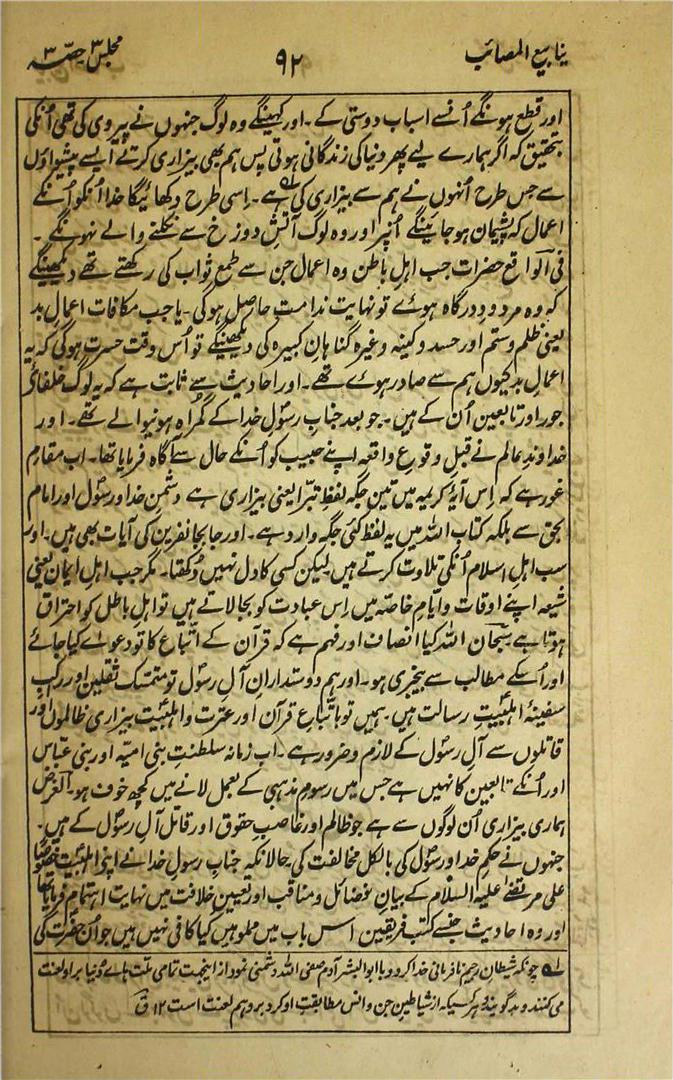 ینابیع المصائب
۹۲
مجلس ۳ حصّہ ۳
اور قطع ہونگے اُنسے اسباب دوستی کے ۔ اور کہینگے وہ لوگ جنہوں نے پیروی کی تھی اُنکی
بتحقیق کہ اگر ہمارے لیے پھر دنیا کی زندگانی ہوتی پس ہم بھی بیزاری کرتے ایسے پیشواؤں
سے جس طرح اُنہوں نے ہم سے بیزاری کی ہے ۔ اِسی طرح دکھائیگا خدا اُنکو اُنکے
اعمال کہ پشیمان ہوجائینگے اُنپر اور وہ لوگ آتش دوزخ سے نکلنے والے نہونگے ۔
فی الواقع حضرات جب اہلِ باطن وہ اعمال جن سے طمع ثواب کی رکھتے تھے دیکھینگے
کہ وہ مردودِ درگاہ ہوئے تو نہایت ندامت حاصل ہوگی ۔ یا جب مکافات اعمالِ بد
یعنی ظلم و ستم اور حسد و کینہ وغیرہ گناہانِ کبیرہ کی دیکھینگے تو اُس وقت حسرت ہوگی کہ یہ
اعمالِ بد کیوں ہم سے صادر ہوئے تھے ۔ اور احادیث سے ثابت ہے کہ یہ لوگ خلفائے
جور اور تابعین اُن کے ہیں ۔ جو بعد جناب رسولِ خدا کے گمراہ ہونیوالے تھے ۔ اور
خداوندِ عالم نے قبلِ وقوعِ واقعہ اپنے حبیب کو اُنکے حال سے آگاہ فرمایا تھا ۔ اب مقام
غور ہے کہ اِس آیۂ کریمہ میں تین جگہ لفظِ تبرّا یعنی بیزاری ہے دشمنِ خدا و رسول اور امام
بحق سے بلکہ کتاب اللہ میں یہ لفظ کئی جگہ وارد ہے ۔ اور جا بجا نفرین کی آیات بھی ہیں ۔ اور
سب اہلِ اسلام اُنکی تلاوت کرتے ہیں لیکن کسی کا دل نہیں دُکھتا ۔ مگر جب اہلِ ایمان یعنی
شیعہ اپنے اوقات و ایامِ خاصّہ میں اِس عبادت کو بجا لاتے ہیں تو اہلِ باطل کو احتراق
ہوتا ہے سبحان اللہ کیا انصاف اور فہم ہے کہ قرآن کے اتّباع کا تو دعوائے کیا جائے
اور اُسکے مطالب سے بیخبری ہو ۔ اور ہم دوستدارانِ آلِ رسول تو متمسک ثقلین اور راکبِ
سفینۂ اہلبیتِ رسالت ہیں ۔ ہمیں تو باتّباع قرآن اور عترت و اہلبیت بیزاری ظالموں اور
قاتلوں سے آلِ رسول کے لازم و ضرور ہے ۔ اب زمانہ سلطنتِ بنی امیّہ اور بنی عبّاس
اور اُنکے تابعین کا نہیں ہے جس میں رسومِ مذہبی کے بعمل لانے میں کچھ خوف ہو ۔ الغرض
ہماری بیزاری اُن لوگوں سے ہے جو ظالم اور غاصبِ حقوق اور قاتلِ آلِ رسول کے ہیں ۔
جنہوں نے حکمِ خدا و رسول کی بالکل مخالفت کی حالانکہ جناب رسولِ خدا نے اپنے اہلبیت خصوصاً
علی مرتضےٰ علیہ السلام کے بیانِ فضائل و مناقب اور تعیینِ خلافت میں نہایت اہتمام فرمایا تھا
اور وہ احادیث جنسے کتبِ فریقین اس باب میں مملو ہیں کیا کافی نہیں ہیں جو اُن حضرت کی
چونکہ شیطان رجیم نافرمانی خدا کرد و با ابوالبشر آدم صفی اللہ دشمنی نمود از اینجہت تمامی ملت ہائے دنیا بر او لعنت
می کنند و بد گویند و ہر کسیکہ از شیاطین جن و انس مطابقتِ او کرد برو ہم لعنت است ۱۲ ق